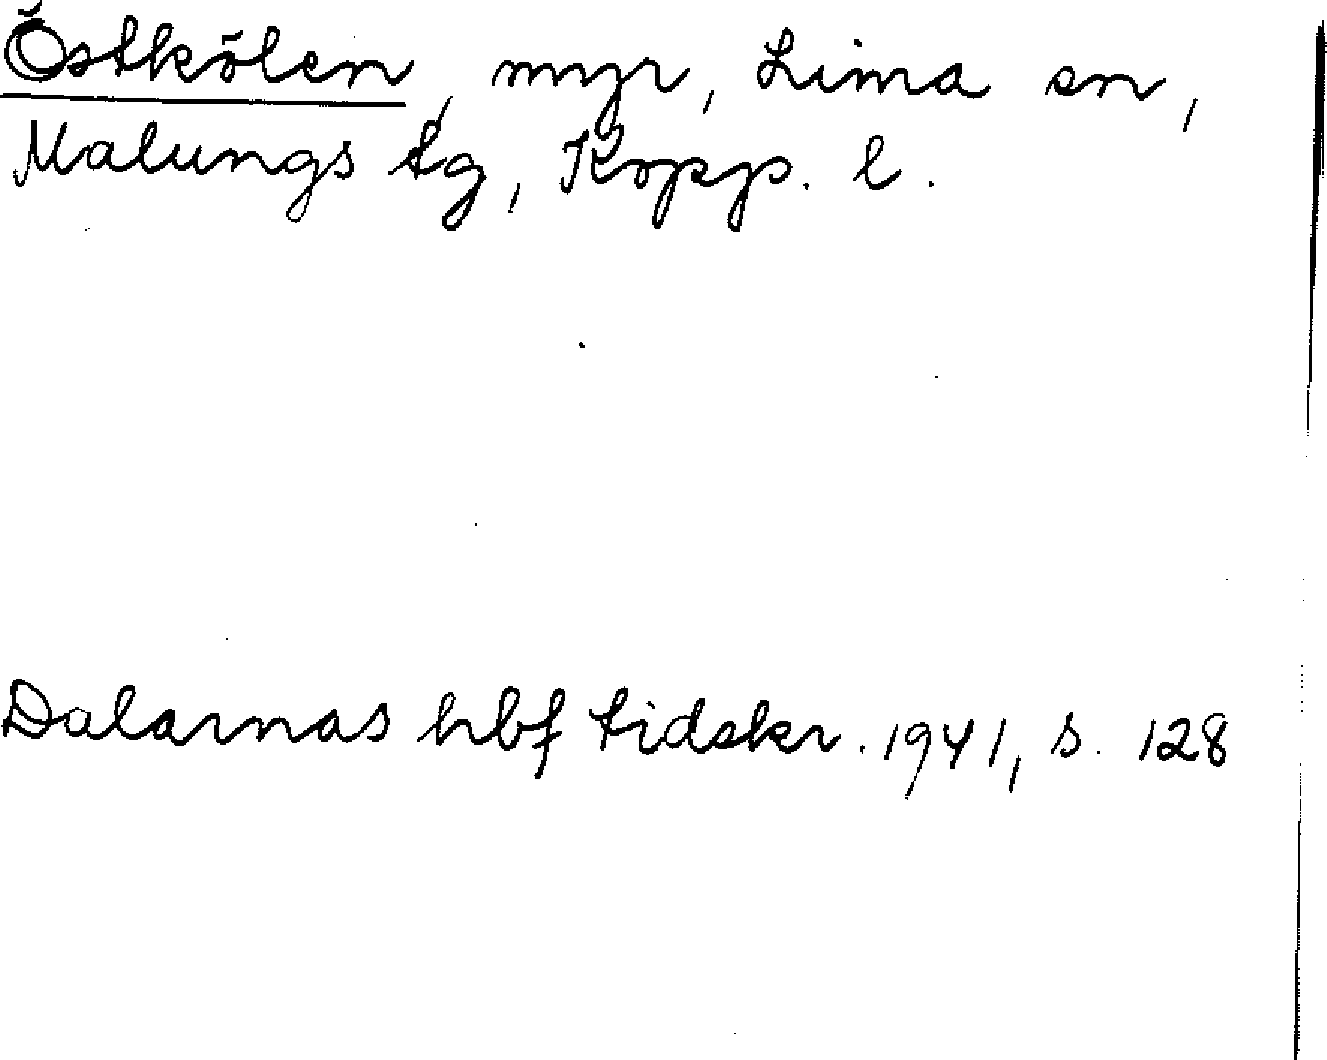 Östkölen, myr, Lima sn,
Malungs tg, Kopp. l.
Dalarnas hbf tidskr. 1941, s. 128